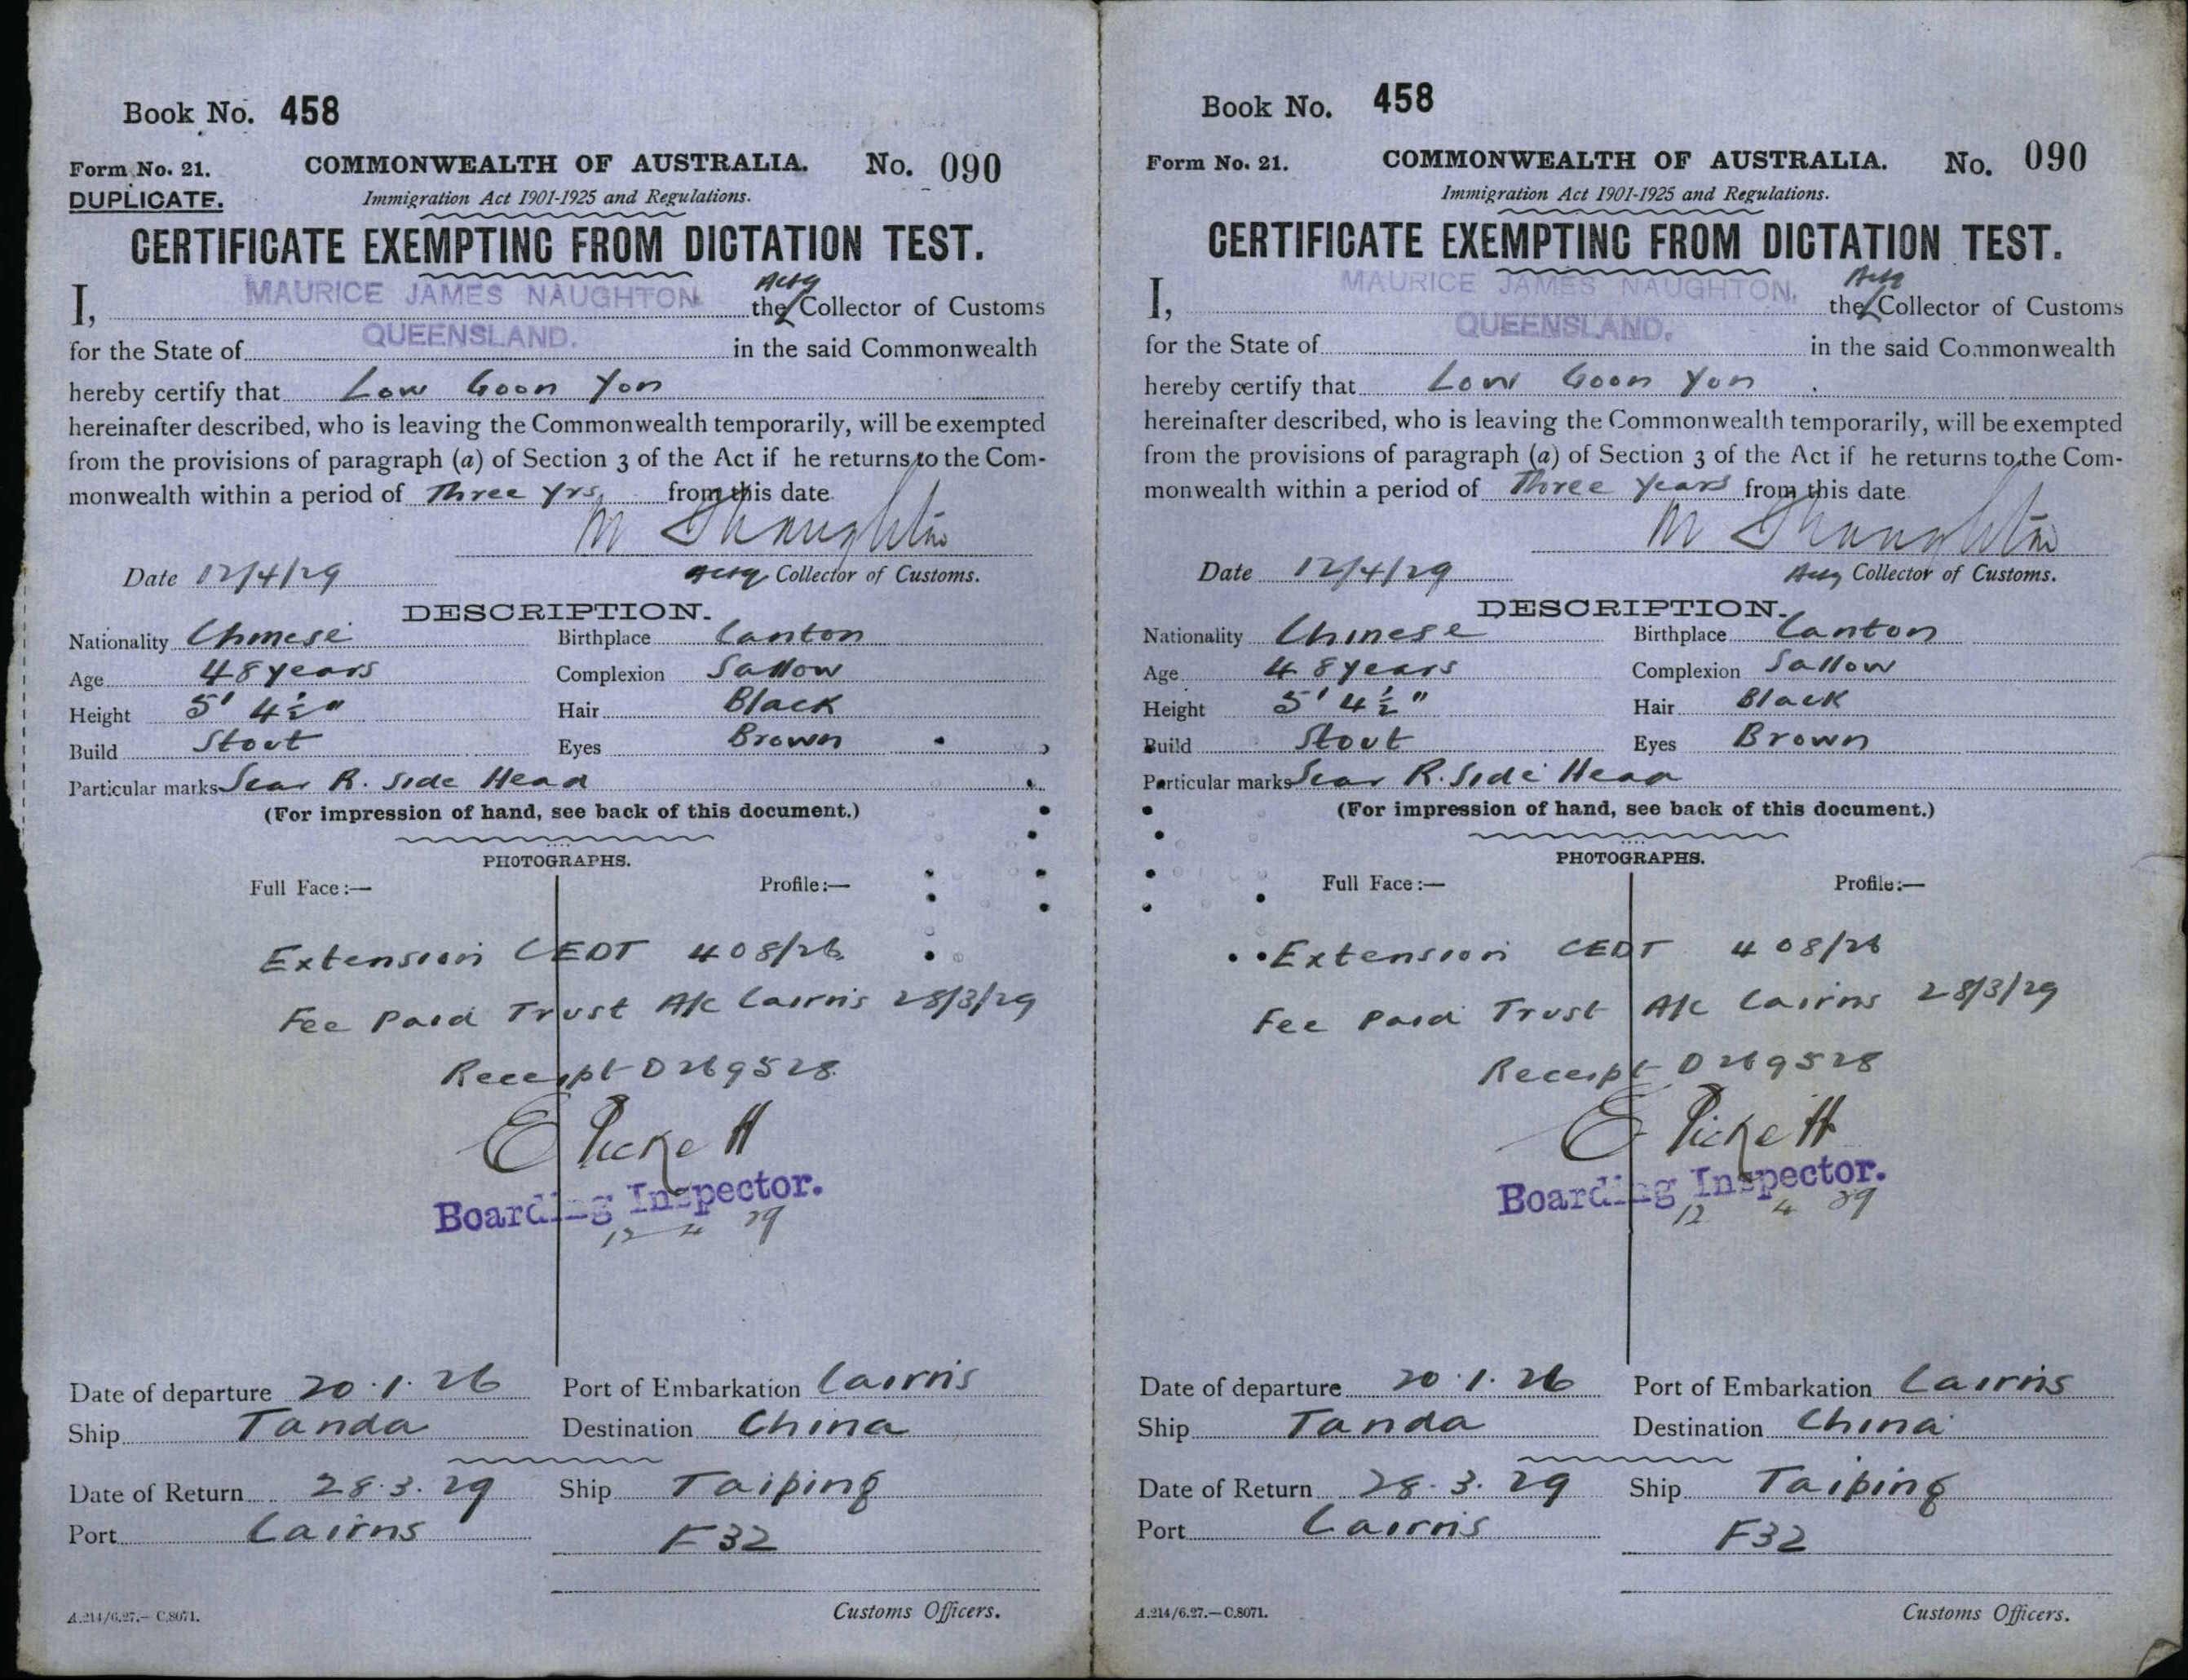 Book No. 458
Form No. 21. COMMONWEALTH OF AUSTRALIA. No. 090
DUPLICATE. Immigration Act 1901-1925 and Regulations.
CERTIFICATE EXEMPTING FROM DICTATION TEST.
I, MAURICE JAMES NAUGHTON. the Actg Collector of Customs
for the State of QUEENSLAND. in the said Commonwealth
hereby certify that Low Goon Yon
hereinafter described, who is leaving the Commonwealth temporarily, will be exempted
from the provisions of paragraph (a) of Section 3 of the Act if he returns to the Com-
monwealth within a period of Three Yrs. from this date
Date 12/4/29 Actg Collector of Customs.
DESCRIPTION.
Nationality Chinese Birthplace Canton
Age 48 years Complexion Sallow
Height 5' 4½" Hair Black
Build Stout Eyes Brown
Particular marks Scar R. Side Head
(For impression of hand, see back of this document.)
PHOTOGRAPHS.
Full Face:— Profile:—
Extension CEDT 408/26
Fee Paid Trust A/c Cairns 28/3/29
Receipt D269528
E Pickett
Boarding Inspector.
12 4 29
Date of departure 20.1.26 Port of Embarkation Cairns
Ship Tanda Destination China
Date of Return 28.3.29 Ship Taiping
Port Cairns F32
A.214/6.27.—C.8071. Customs Officers.
Book No. 458
Form No. 21. COMMONWEALTH OF AUSTRALIA. No. 090
Immigration Act 1901-1925 and Regulations.
CERTIFICATE EXEMPTING FROM DICTATION TEST.
I, MAURICE JAMES NAUGHTON. the Actg Collector of Customs
for the State of QUEENSLAND. in the said Commonwealth
hereby certify that Low Goon Yon
hereinafter described, who is leaving the Commonwealth temporarily, will be exempted
from the provisions of paragraph (a) of Section 3 of the Act if he returns to the Com-
monwealth within a period of Three Years from this date
Date 12/4/29 Actg Collector of Customs.
DESCRIPTION.
Nationality Chinese Birthplace Canton
Age 48 years Complexion Sallow
Height 5' 4½" Hair Black
Build Stout Eyes Brown
Particular marks Scar R. Side Head
(For impression of hand, see back of this document.)
PHOTOGRAPHS.
Full Face:— Profile:—
Extension CEDT 408/26
Fee Paid Trust A/c Cairns 28/3/29
Receipt D269528
E Pickett
Boarding Inspector.
12 4 29
Date of departure 20.1.26 Port of Embarkation Cairns
Ship Tanda Destination China
Date of Return 28.3.29 Ship Taiping
Port Cairns F32
A.214/6.27.—C.8071. Customs Officers.